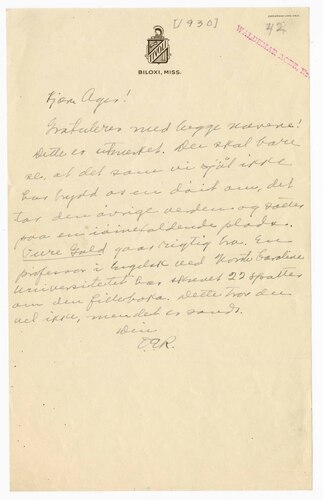 [1930]
42
WALDEMAR AGER, 
BILOXI, MISS.
Kjære Ager!
Gratulerer med begge sønene!
Dette er utmerket. Der skal bare
se, at det som vi sjøl ikke
har brydd os en døit om, det
tar den øvrige verden og sætter
paa en iøinefaldende plads.
Pure Gold gaar rigtig bra. En
professor i Engelsk ved North Carolina
Universitetet har skrevet 22 spalter
om den filleboka. Dette tror du
vel ikke, men det er sandt.
Din
O.E.R.